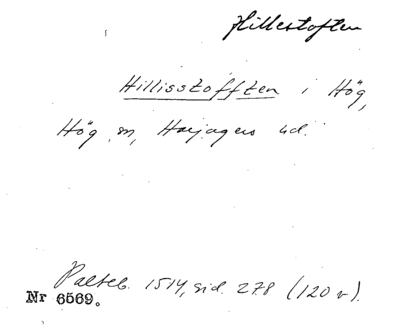 Hillestoften
Hillisstofften i Hög,
Hög sn, Harjagers hd.
Palteb. 1514, sid. 278 (120 v).
Nr 6569.